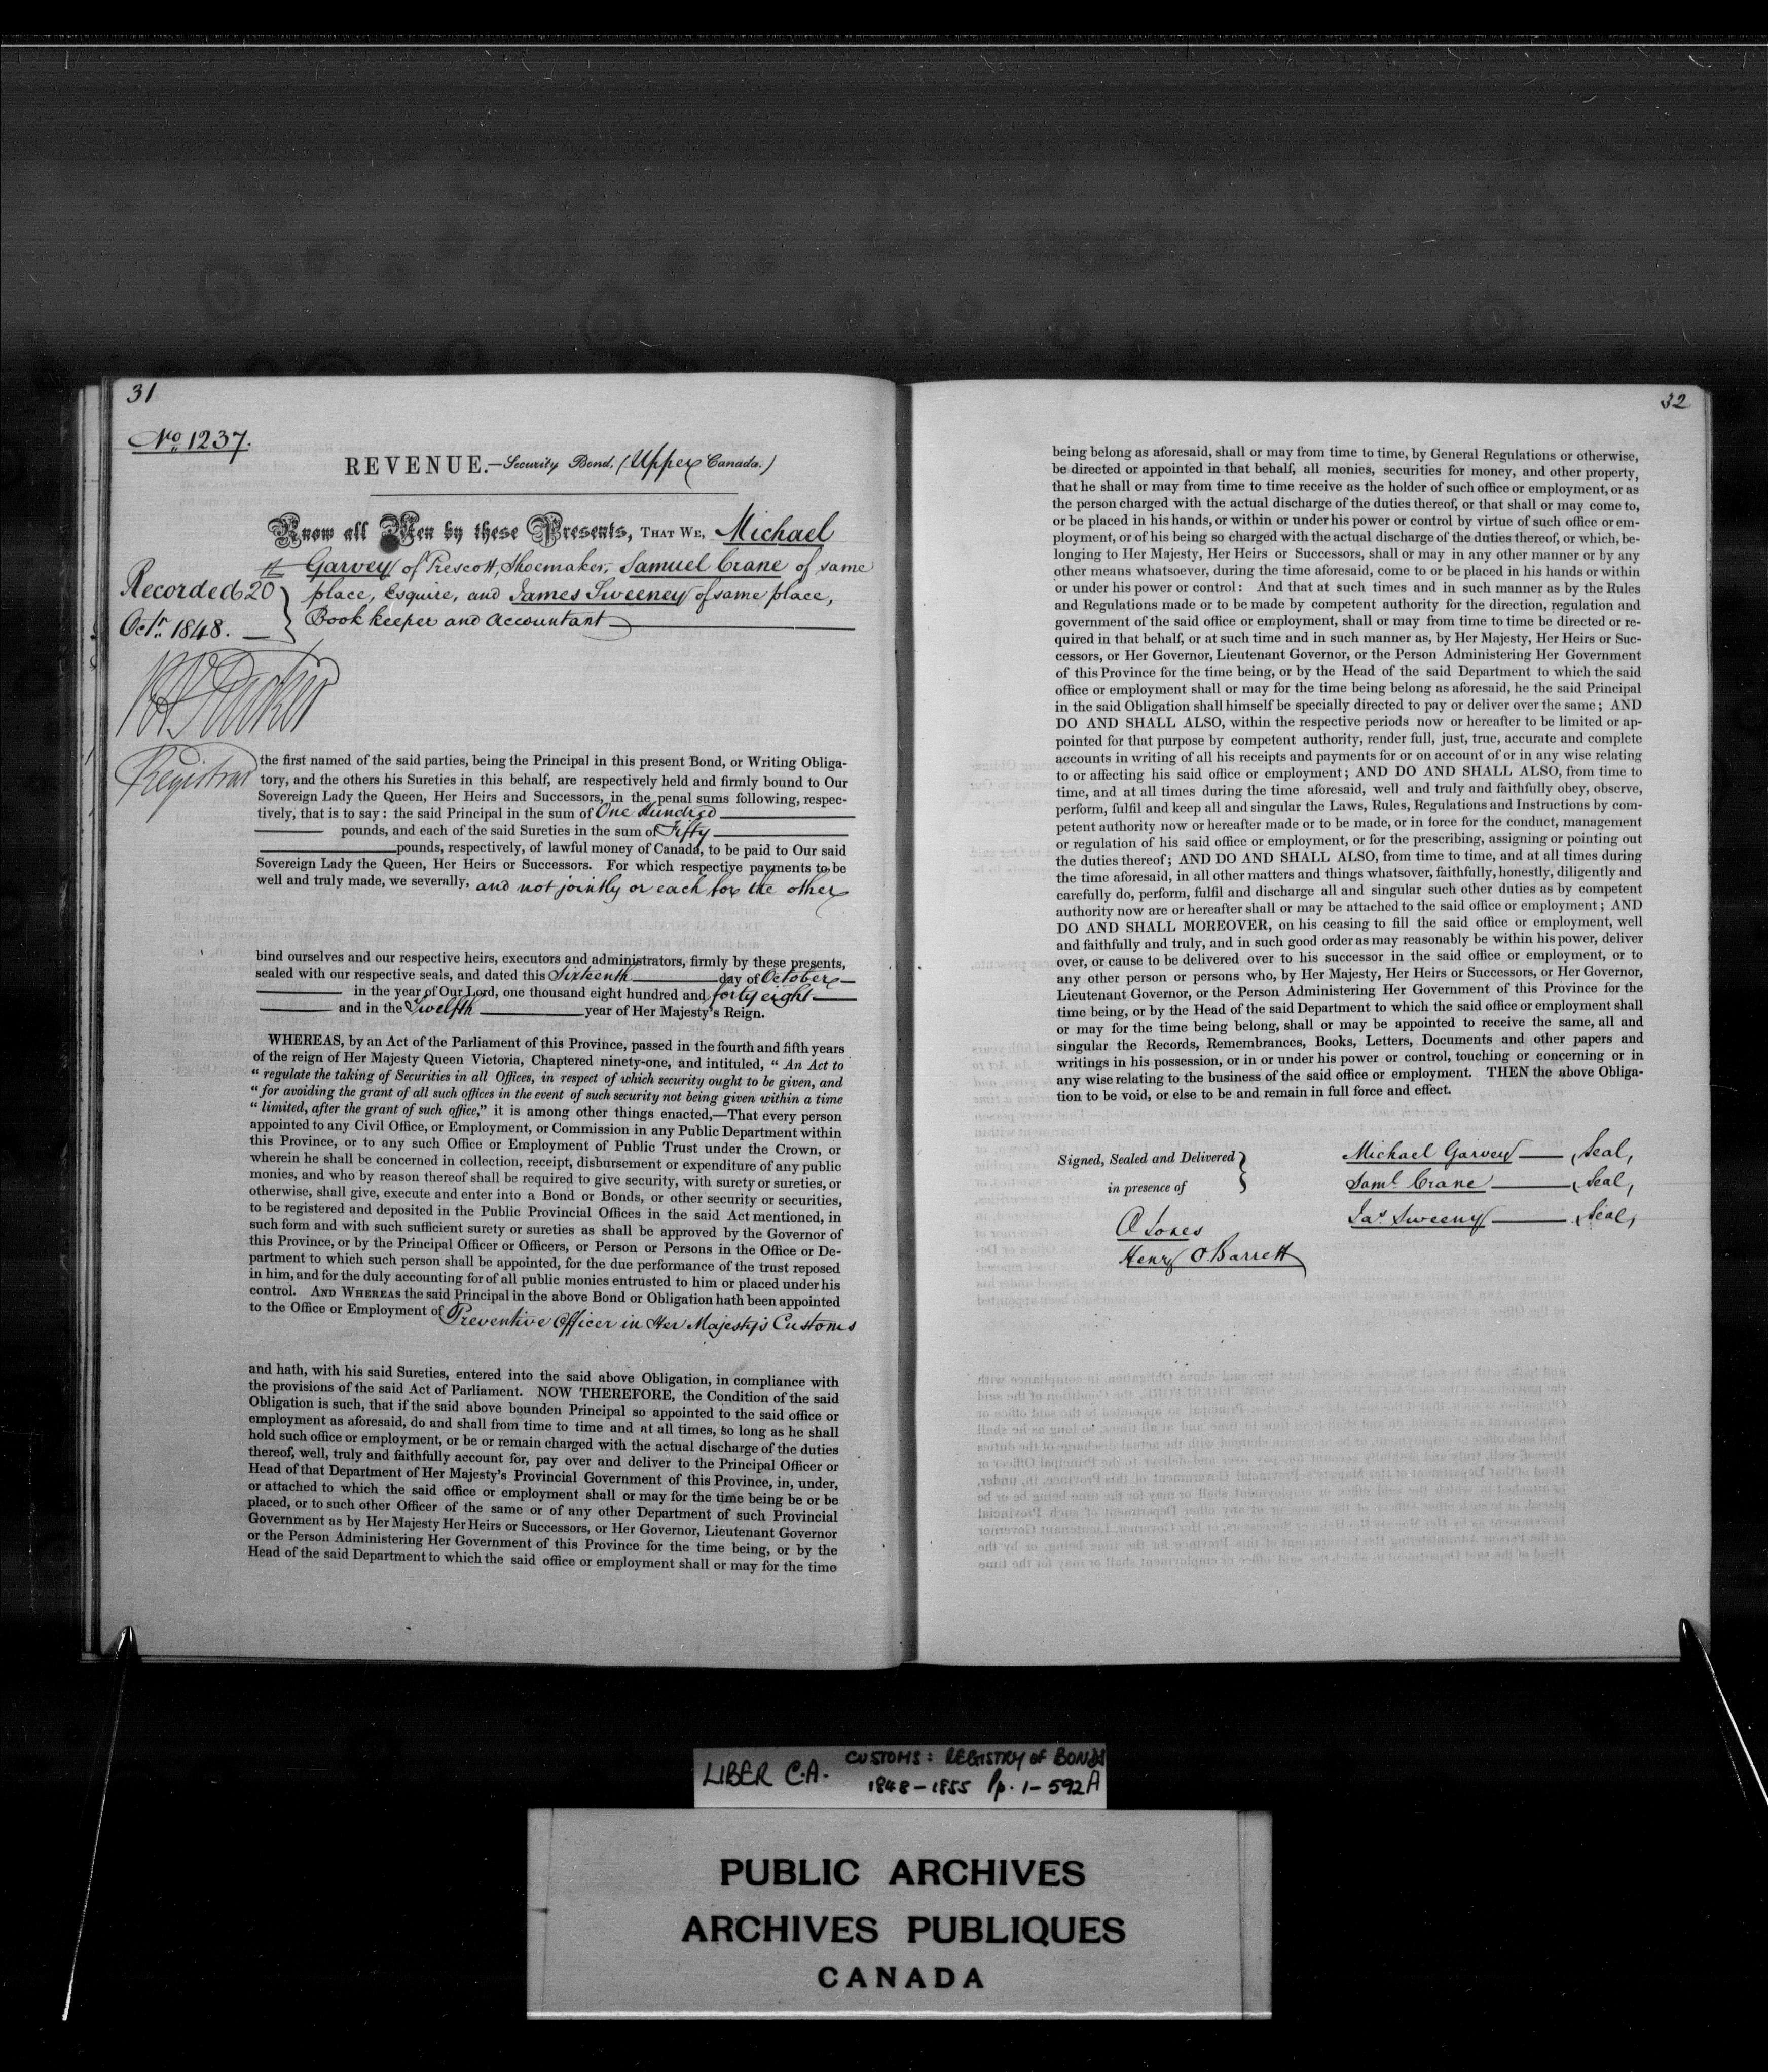 31
No. 1237.
REVENUE.—Security Bond. (Upper Canada.)
Know all Men by these Presents, THAT WE, Michael
Garvey of Prescott, Shoemaker, Samuel Crane of same
place, Esquire, and James Sweeney of same place,
Book keeper and Accountant
Recorded 20th
Octr. 1848.
Registrar
the first named of the said parties, being the Principal in this present Bond, or Writing Obliga-
tory, and the others his Sureties in this behalf, are respectively held and firmly bound to Our
Sovereign Lady the Queen, Her Heirs and Successors, in the penal sums following, respec-
tively, that is to say: the said Principal in the sum of One Hundred
pounds, and each of the said Sureties in the sum of Fifty
pounds, respectively, of lawful money of Canada, to be paid to Our said
Sovereign Lady the Queen, Her Heirs or Successors. For which respective payments to be
well and truly made, we severally, and not jointly or each for the other
bind ourselves and our respective heirs, executors and administrators, firmly by these presents,
sealed with our respective seals, and dated this Sixteenth day of October
in the year of Our Lord, one thousand eight hundred and forty eight
and in the Twelfth year of Her Majesty's Reign.
WHEREAS, by an Act of the Parliament of this Province, passed in the fourth and fifth years
of the reign of Her Majesty Queen Victoria, Chaptered ninety-one, and intituled, "An Act to
"regulate the taking of Securities in all Offices, in respect of which security ought to be given, and
"for avoiding the grant of all such offices in the event of such security not being given within a time
"limited, after the grant of such office," it is among other things enacted,—That every person
appointed to any Civil Office, or Employment, or Commission in any Public Department within
this Province, or to any such Office or Employment of Public Trust under the Crown, or
wherein he shall be concerned in collection, receipt, disbursement or expenditure of any public
monies, and who by reason thereof shall be required to give security, with surety or sureties, or
otherwise, shall give, execute and enter into a Bond or Bonds, or other security or securities,
to be registered and deposited in the Public Provincial Offices in the said Act mentioned, in
such form and with such sufficient surety or sureties as shall be approved by the Governor of
this Province, or by the Principal Officer or Officers, or Person or Persons in the Office or De-
partment to which such person shall be appointed, for the due performance of the trust reposed
in him, and for the duly accounting for of all public monies entrusted to him or placed under his
control. AND WHEREAS the said Principal in the above Bond or Obligation hath been appointed
to the Office or Employment of Preventive Officer in Her Majesty's Customs
and hath, with his said Sureties, entered into the said above Obligation, in compliance with
the provisions of the said Act of Parliament. NOW THEREFORE, the Condition of the said
Obligation is such, that if the said above bounden Principal so appointed to the said office or
employment as aforesaid, do and shall from time to time and at all times, so long as he shall
hold such office or employment, or be or remain charged with the actual discharge of the duties
thereof, well, truly and faithfully account for, pay over and deliver to the Principal Officer or
Head of that Department of Her Majesty's Provincial Government of this Province, in, under,
or attached to which the said office or employment shall or may for the time being be or be
placed, or to such other Officer of the same or of any other Department of such Provincial
Government as by Her Majesty Her Heirs or Successors, or Her Governor, Lieutenant Governor
or the Person Administering Her Government of this Province for the time being, or by the
Head of the said Department to which the said office or employment shall or may for the time
32
being belong as aforesaid, shall or may from time to time, by General Regulations or otherwise,
be directed or appointed in that behalf, all monies, securities for money, and other property,
that he shall or may from time to time receive as the holder of such office or employment, or as
the person charged with the actual discharge of the duties thereof, or that shall or may come to,
or be placed in his hands, or within or under his power or control by virtue of such office or em-
ployment, or of his being so charged with the actual discharge of the duties thereof, or which, be-
longing to Her Majesty, Her Heirs or Successors, shall or may in any other manner or by any
other means whatsoever, during the time aforesaid, come to or be placed in his hands or within
or under his power or control: And that at such times and in such manner as by the Rules
and Regulations made or to be made by competent authority for the direction, regulation and
government of the said office or employment, shall or may from time to time be directed or re-
quired in that behalf, or at such time and in such manner as, by Her Majesty, Her Heirs or Suc-
cessors, or Her Governor, Lieutenant Governor, or the Person Administering Her Government
of this Province for the time being, or by the Head of the said Department to which the said
office or employment shall or may for the time being belong as aforesaid, he the said Principal
in the said Obligation shall himself be specially directed to pay or deliver over the same; AND
DO AND SHALL ALSO, within the respective periods now or hereafter to be limited or ap-
pointed for that purpose by competent authority, render full, just, true, accurate and complete
accounts in writing of all his receipts and payments for or on account of or in any wise relating
to or affecting his said office or employment; AND DO AND SHALL ALSO, from time to
time, and at all times during the time aforesaid, well and truly and faithfully obey, observe,
perform, fulfil and keep all and singular the Laws, Rules, Regulations and Instructions by com-
petent authority now or hereafter made or to be made, or in force for the conduct, management
or regulation of his said office or employment, or for the prescribing, assigning or pointing out
the duties thereof; AND DO AND SHALL ALSO, from time to time, and at all times during
the time aforesaid, in all other matters and things whatsover, faithfully, honestly, diligently and
carefully do, perform, fulfil and discharge all and singular such other duties as by competent
authority now are or hereafter shall or may be attached to the said office or employment; AND
DO AND SHALL MOREOVER, on his ceasing to fill the said office or employment, well
and faithfully and truly, and in such good order as may reasonably be within his power, deliver
over, or cause to be delivered over to his successor in the said office or employment, or to
any other person or persons who, by Her Majesty, Her Heirs or Successors, or Her Governor,
Lieutenant Governor, or the Person Administering Her Government of this Province for the
time being, or by the Head of the said Department to which the said office or employment shall
or may for the time being belong, shall or may be appointed to receive the same, all and
singular the Records, Remembrances, Books, Letters, Documents and other papers and
writings in his possession, or in or under his power or control, touching or concerning or in
any wise relating to the business of the said office or employment. THEN the above Obliga-
tion to be void, or else to be and remain in full force and effect.
Signed, Sealed and Delivered
in presence of
Michael Garvey (Seal)
Saml. Crane (Seal)
Jas. Sweeny (Seal)
A Jones
Henry O. Barrett
LIBER C.A. CUSTOMS: REGISTRY OF BONDS
1848-1855 Pp. 1-592A
PUBLIC ARCHIVES
ARCHIVES PUBLIQUES
CANADA